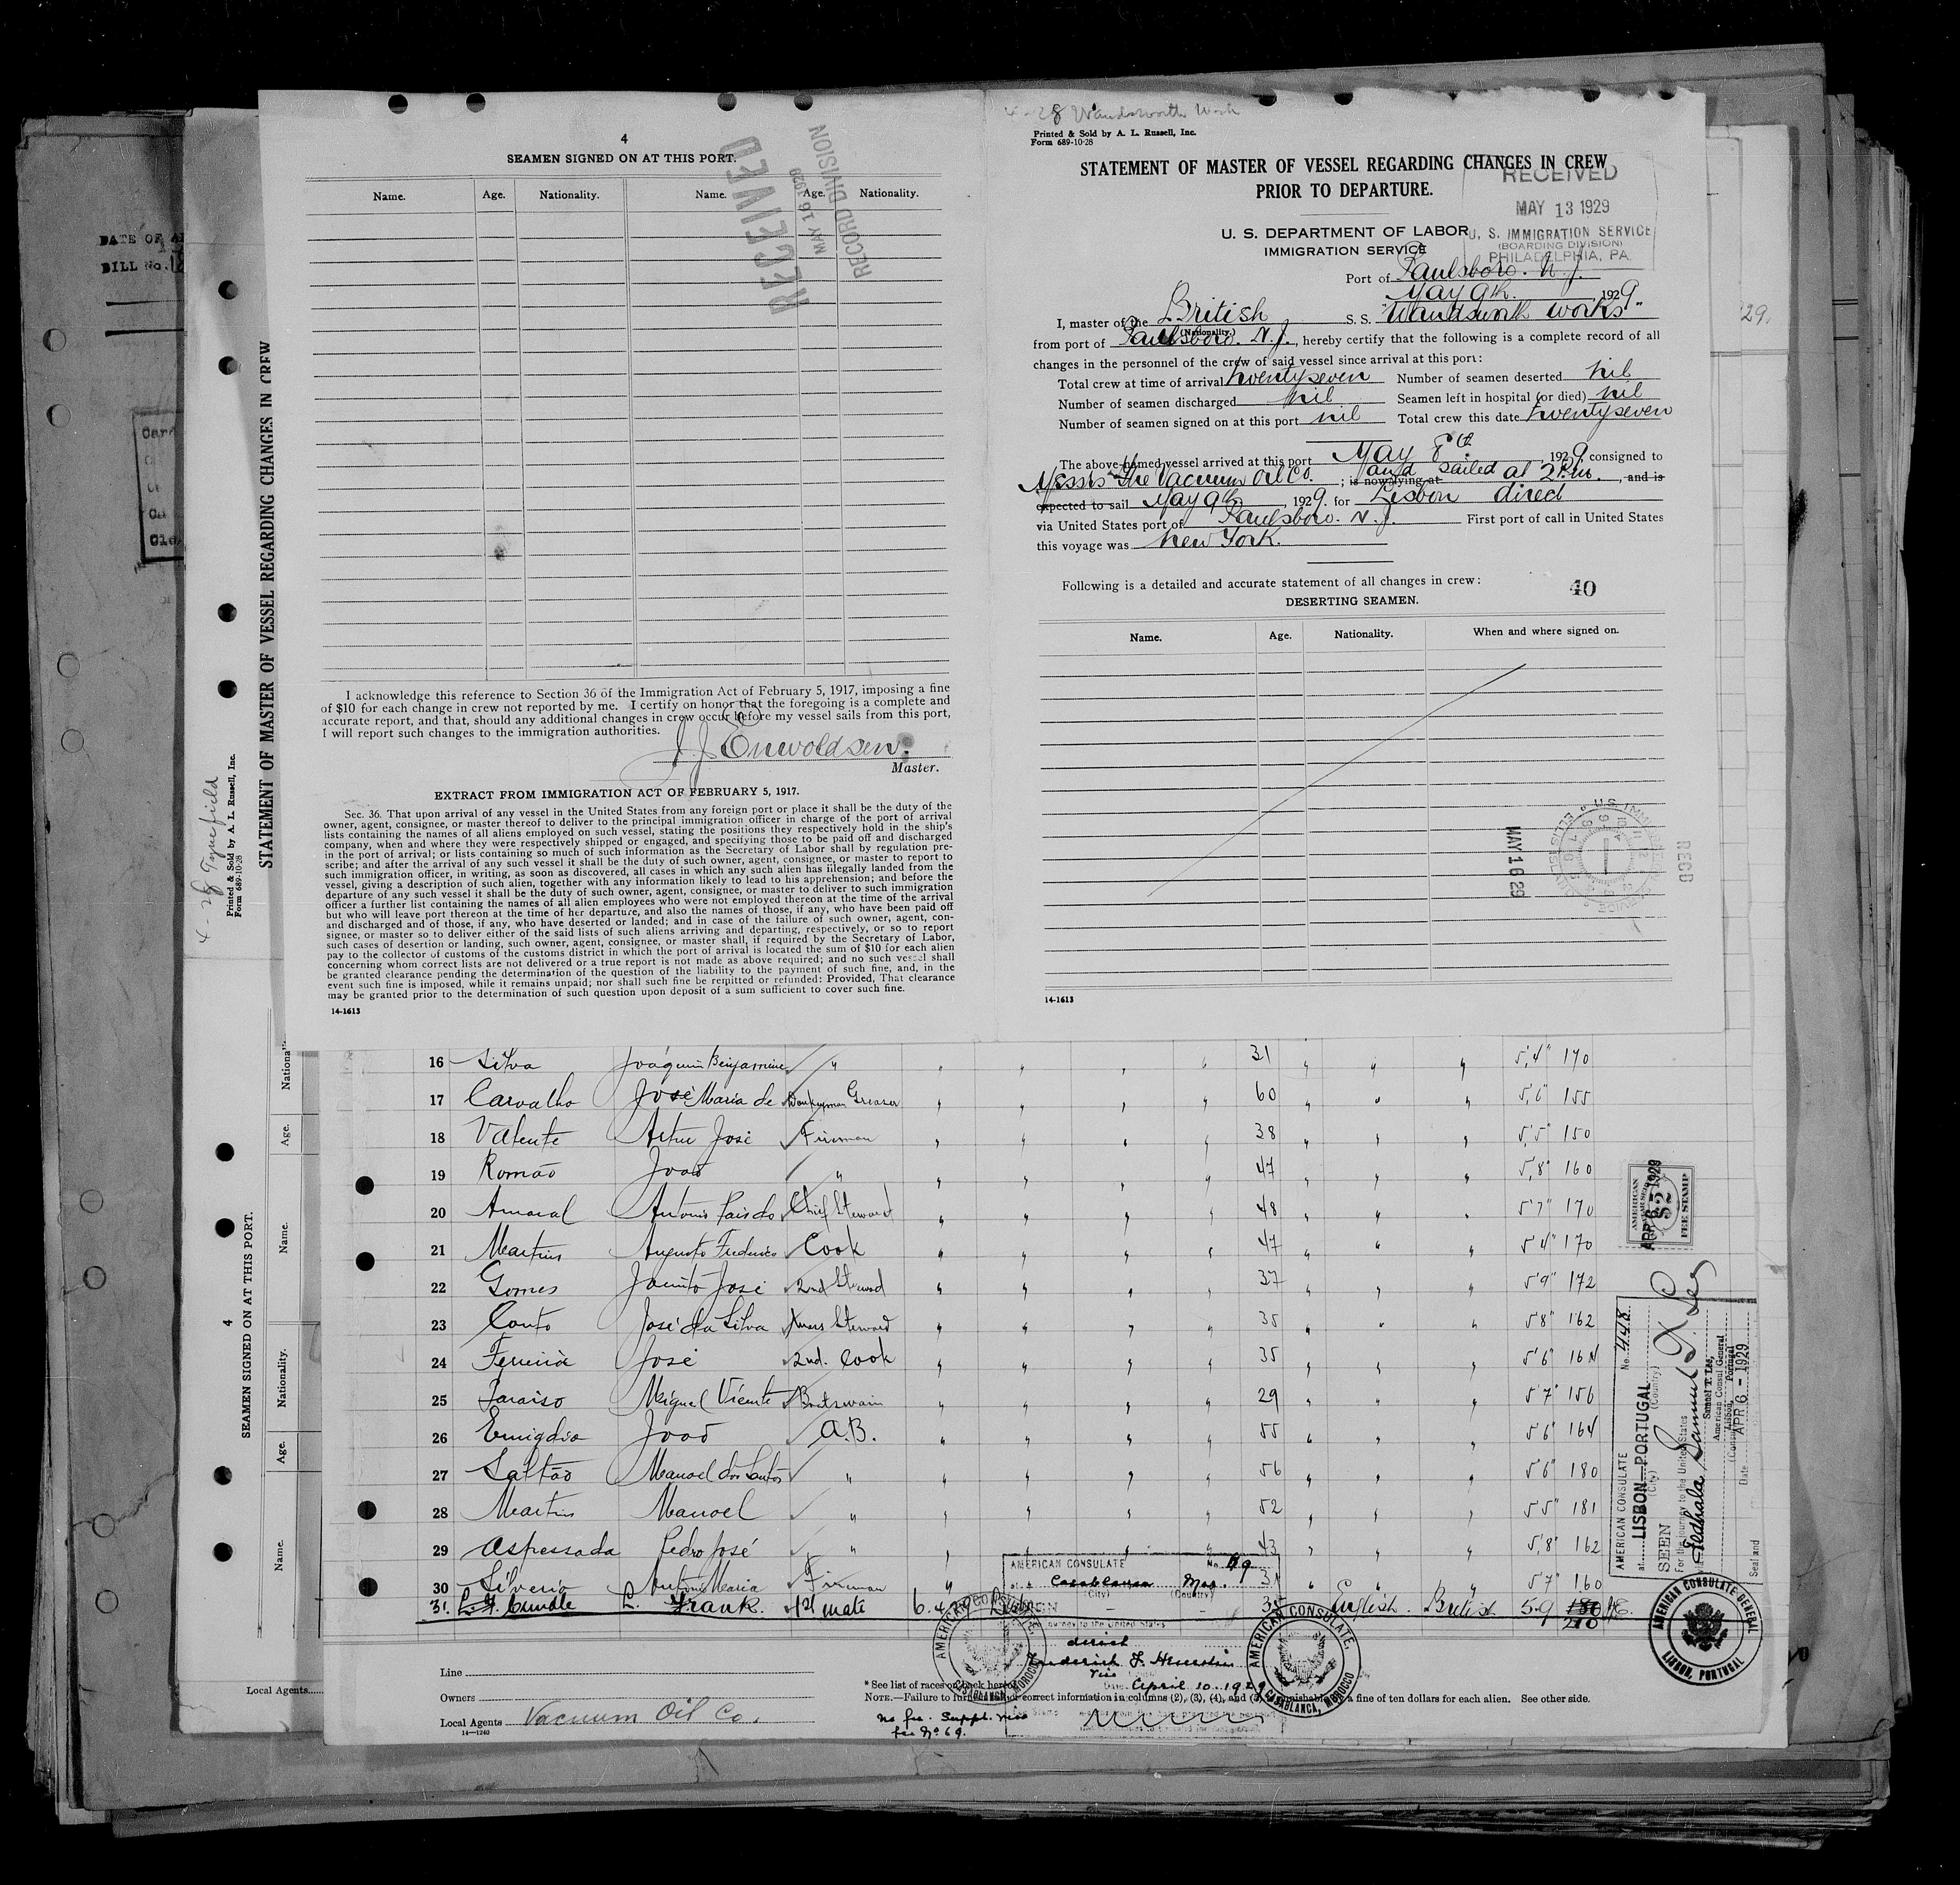 4
SEAMEN SIGNED ON AT THIS PORT.
Name. Age. Nationality. Name. Age. Nationality.
RECEIVED
MAY 16 1929
RECORD DIVISION
I acknowledge this reference to Section 36 of the Immigration Act of February 5, 1917, imposing a fine
of $10 for each change in crew not reported by me. I certify on honor that the foregoing is a complete and
accurate report, and that, should any additional changes in crew occur before my vessel sails from this port,
I will report such changes to the immigration authorities.
J. J. Enwoldsen.
Master.
EXTRACT FROM IMMIGRATION ACT OF FEBRUARY 5, 1917.
Sec. 36. That upon arrival of any vessel in the United States from any foreign port or place it shall be the duty of the
owner, agent, consignee, or master thereof to deliver to the principal immigration officer in charge of the port of arrival
lists containing the names of all aliens employed on such vessel, stating the positions they respectively hold in the ship's
company, when and where they were respectively shipped or engaged, and specifying those to be paid off and discharged
in the port of arrival; or lists containing so much of such information as the Secretary of Labor shall by regulation pre-
scribe; and after the arrival of any such vessel it shall be the duty of such owner, agent, consignee, or master to report to
such immigration officer, in writing, as soon as discovered, all cases in which any such alien has illegally landed from the
vessel, giving a description of such alien, together with any information likely to lead to his apprehension; and before the
departure of any such vessel it shall be the duty of such owner, agent, consignee, or master to deliver to such immigration
officer a further list containing the names of all alien employees who were not employed thereon at the time of the arrival
but who will leave port thereon at the time of her departure, and also the names of those, if any, who have been paid off
and discharged and of those, if any, who have deserted or landed; and in case of the failure of such owner, agent, con-
signee, or master so to deliver either of the said lists of such aliens arriving and departing, respectively, or so to report
such cases of desertion or landing, such owner, agent, consignee, or master shall, if required by the Secretary of Labor,
pay to the collector of customs of the customs district in which the port of arrival is located the sum of $10 for each alien
concerning whom correct lists are not delivered or a true report is not made as above required; and no such vessel shall
be granted clearance pending the determination of the question of the liability to the payment of such fine, and, in the
event such fine is imposed, while it remains unpaid; nor shall such fine be remitted or refunded: Provided, That clearance
may be granted prior to the determination of such question upon deposit of a sum sufficient to cover such fine.
14-1613
4-28 Wandsworth Work
Printed & Sold by A. L. Russell, Inc.
Form 689-10-28
STATEMENT OF MASTER OF VESSEL REGARDING CHANGES IN CREW
PRIOR TO DEPARTURE.
RECEIVED
MAY 13 1929
U. S. IMMIGRATION SERVICE
(BOARDING DIVISION)
PHILADELPHIA, PA.
U. S. DEPARTMENT OF LABOR
IMMIGRATION SERVICE
Port of Paulsboro. N. J.
May 9th. 1929.
I, master of the British S. S. "Wandswth works"
(Nationality.)
from port of Paulsboro. N. J., hereby certify that the following is a complete record of all
changes in the personnel of the crew of said vessel since arrival at this port:
Total crew at time of arrival twentyseven Number of seamen deserted nil
Number of seamen discharged nil Seamen left in hospital (or died) nil
Number of seamen signed on at this port nil Total crew this date twentyseven
The above-named vessel arrived at this port May 8th, 1929, consigned to
Messrs The Vacuum Oil Co. ; is now lying at and sailed at 2 P.m., and is
expected to sail May 9th, 1929. for Lisbon direct
via United States port of Paulsboro. N. J. First port of call in United States
this voyage was New York.
Following is a detailed and accurate statement of all changes in crew:
40
DESERTING SEAMEN.
Name. Age. Nationality. When and where signed on.
MAY 16 29
RECD
14-1613
16 Silva Joáquim Benjamine " 31 5'4" 170
17 Carvalho José Maria de Donkeyman Greaser 60 5'6" 155
18 Valente Artur José Fireman 38 5'5" 150
19 Romão João " 47 5'8" 160
20 Amaral Antonio Pais do Chief Steward 48 5'7" 170
21 Martins Augusto Frederico Cook 47 5'4" 170
22 Gomes Jacinto José 2nd Steward 37 5'9" 172
23 Couto José da Silva Mess Steward 35 5'8" 162
24 Ferreira José 2nd. Cook 35 5'6" 164
25 Paraiso Miguel Vicente Boatswain 29 5'7" 156
26 Emigdio João A.B. 55 5'6" 164
27 Saltão Manoel dos Santos " 56 5'6" 180
28 Martins Manoel " 52 5'5" 181
29 Aspessada Pedro José " 43 5'8" 162
30 Silverio Antonio Maria Fireman 31 5'7" 160
31. L. Frank. 1st mate 6.4.29 Lisbon 35 English. British 5.9 180 210
AMERICAN CONSULATE No. 69
at Casablanca Mor.
(City) (Country)
journey to the United States
April 10. 1929
AMERICAN CONSULATE, CASABLANCA, MOROCCO
AMERICAN CONSULATE, CASABLANCA, MOROCCO
Line
Owners
Local Agents Vacuum Oil Co.
14—1240
* See list of races on back hereof
NOTE.—Failure to furnish full or correct information in columns (2), (3), (4), and (5) is punishable by a fine of ten dollars for each alien. See other side.
No fee. Suppl. visa
fee No 69.
AMERICAN
FEE STAMP
$2
APR 6 - 1929
AMERICAN CONSULATE No. 448
at LISBON—PORTUGAL
(City) (Country)
SEEN
For the journey to the United States
Samuel T. Lee
Samuel T. Lee,
American Consul General
Lisbon, Portugal
Date APR 6 - 1929
Seal and
AMERICAN CONSULATE GENERAL
LISBON, PORTUGAL
STATEMENT OF MASTER OF VESSEL REGARDING CHANGES IN CREW
4-28 Tynefield
Printed & Sold by A. L. Russell, Inc.
Form 689-10-28
4
SEAMEN SIGNED ON AT THIS PORT.
Name. Age. Nationality. Name. Age.
Local Agents
DATE OF
BILL No.
29.